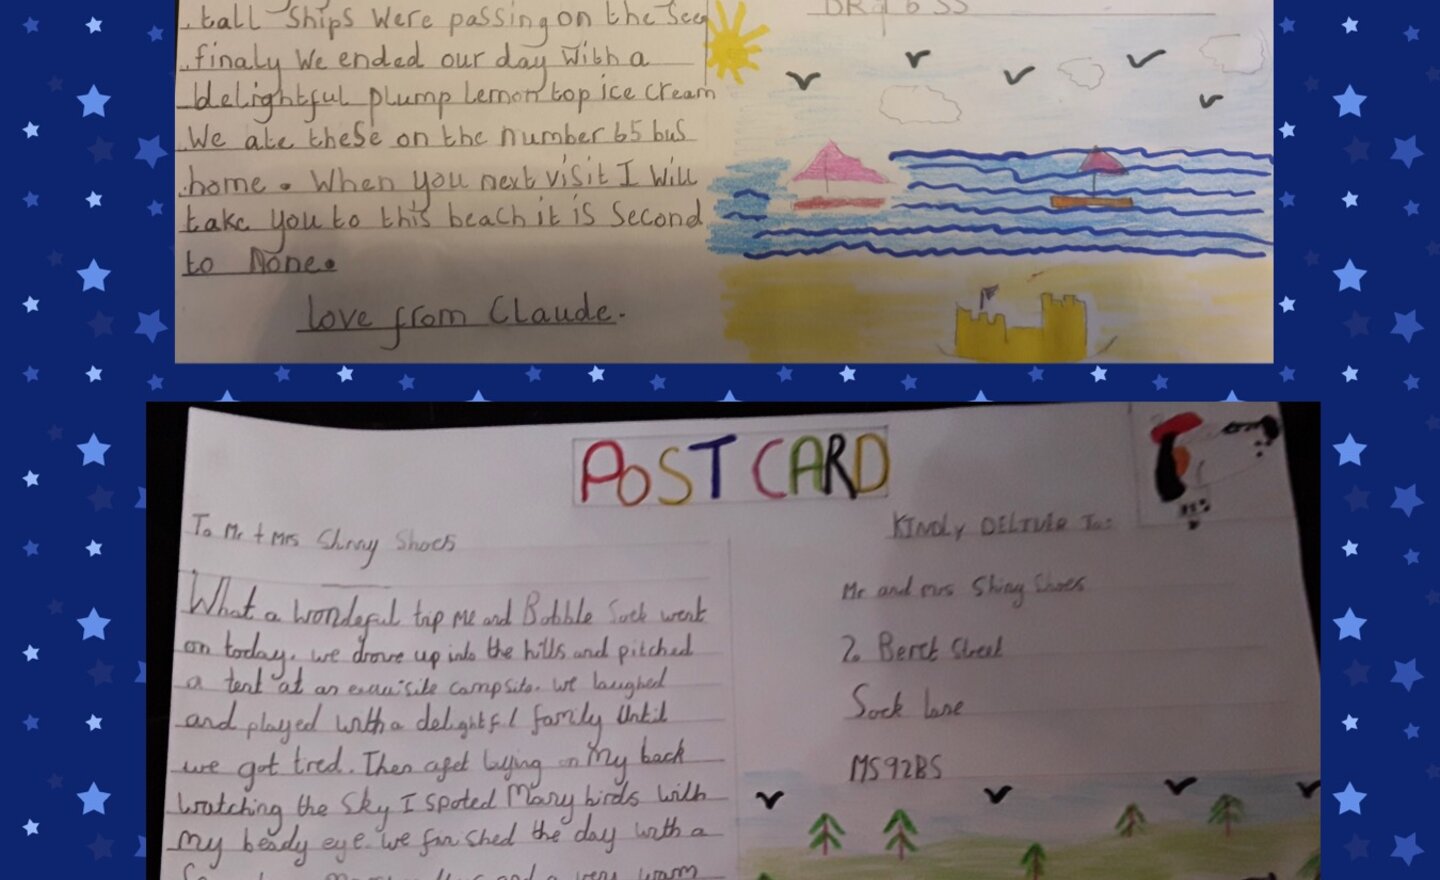 tall Ships were passing on the Sea
finaly We ended our day With a
delightful plump Lemon top ice cream
We ate these on the number 65 bus
home. When you next visit I Will
take you to this beach it is Second
to None.
love from Claude.
POSTCARD
To Mr + Mrs Shiny Shoes
What a wondeful trip Me and Bobble Sock went
on today. we drove up into the hills and pitched
a tent at an exquisite campsite. we laughed
and played with a delightfl family Until
we got tred. Then laying on My back
watching the Sky I spoted Many birds with
my beady eye. we finished the day with a
and a very warm
KINDLY DELIVER To:
Mr and mrs Shiny Shoes
2. Street
Sock lane
MS92BS